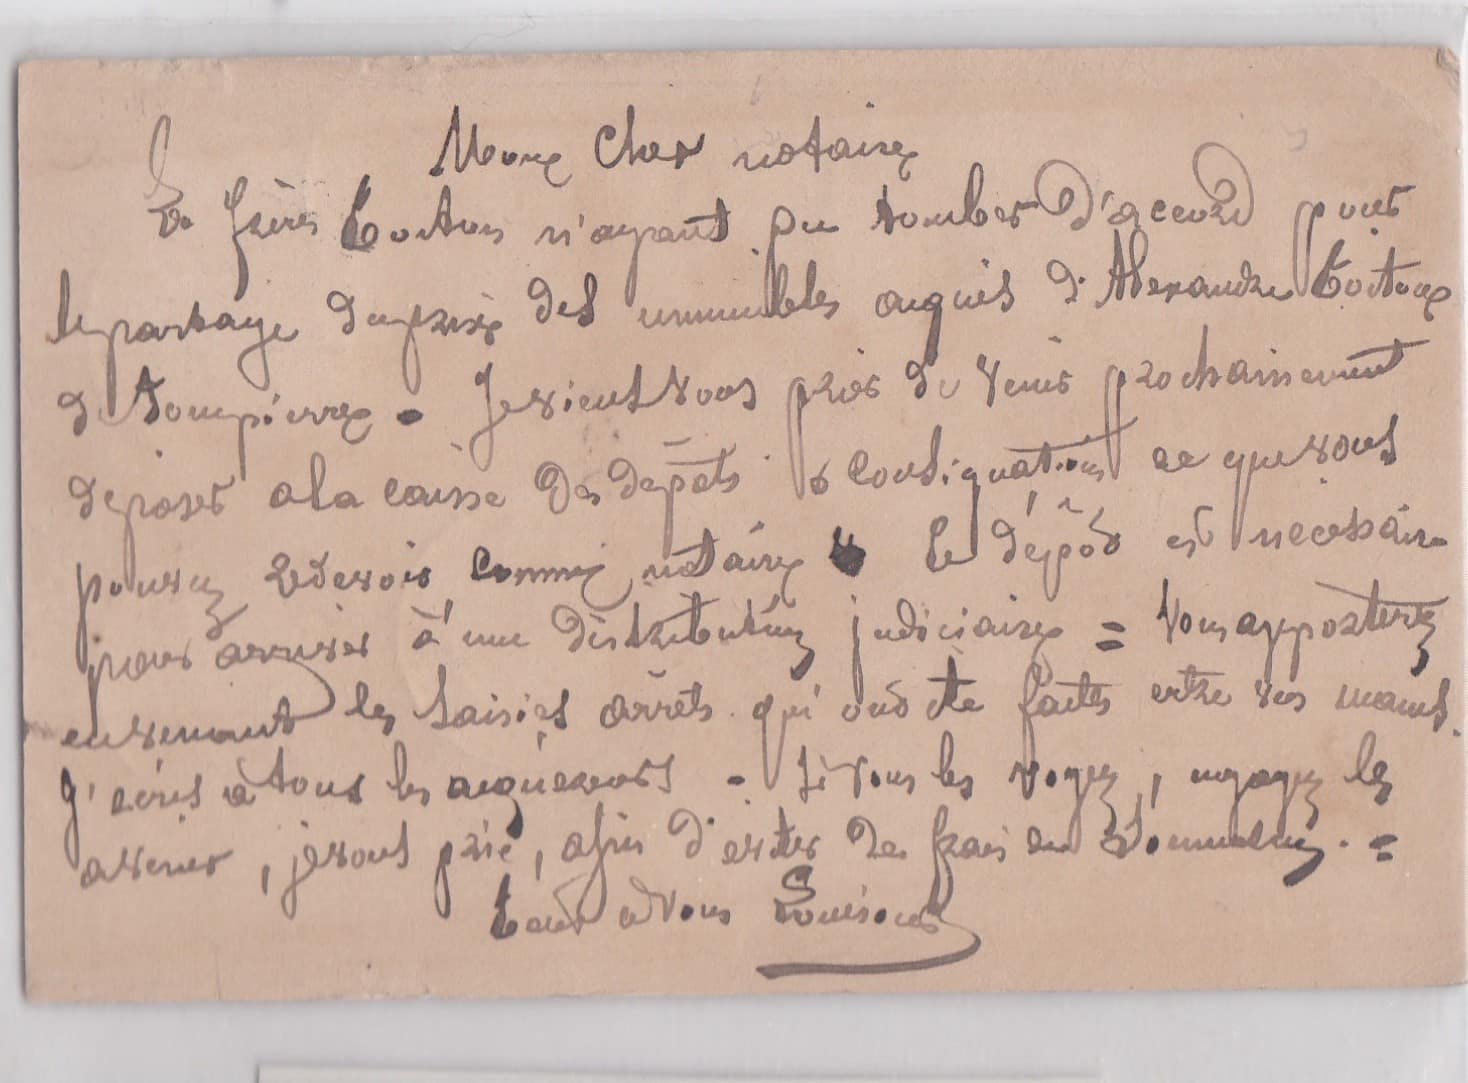 Mon Cher notaire
Les frères Toiton n'ayant pu tomber d'accord pour
le partage du prix des immeubles acquis d'Alexandre Toiton
de Dompierre - Je viens vous prier de venir prochainement
déposer a la caisse des dépôts & Consignations ce que vous
pouvez redevoir comme notaire Ce dépôt est nécessaire
pour arriver à une distribution judiciaire = Vous apporterez
en venant les saisies arrêts qui ont été faites entre vos mains.
J'écris à tous les acquéreurs - Si vous les voyez, engagez les
a venir, je vous prie, afin d'eviter des frais de =
tout a vous